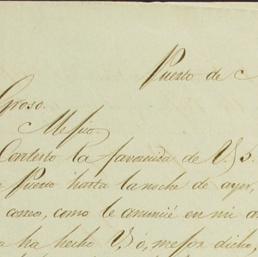 Puerto de
Groso.
Contesto la favorecida de V, S.
Puerto hasta la noche de ayer,
como, como le anuncié en mi
ha hecho V, ó, mejor dicho,